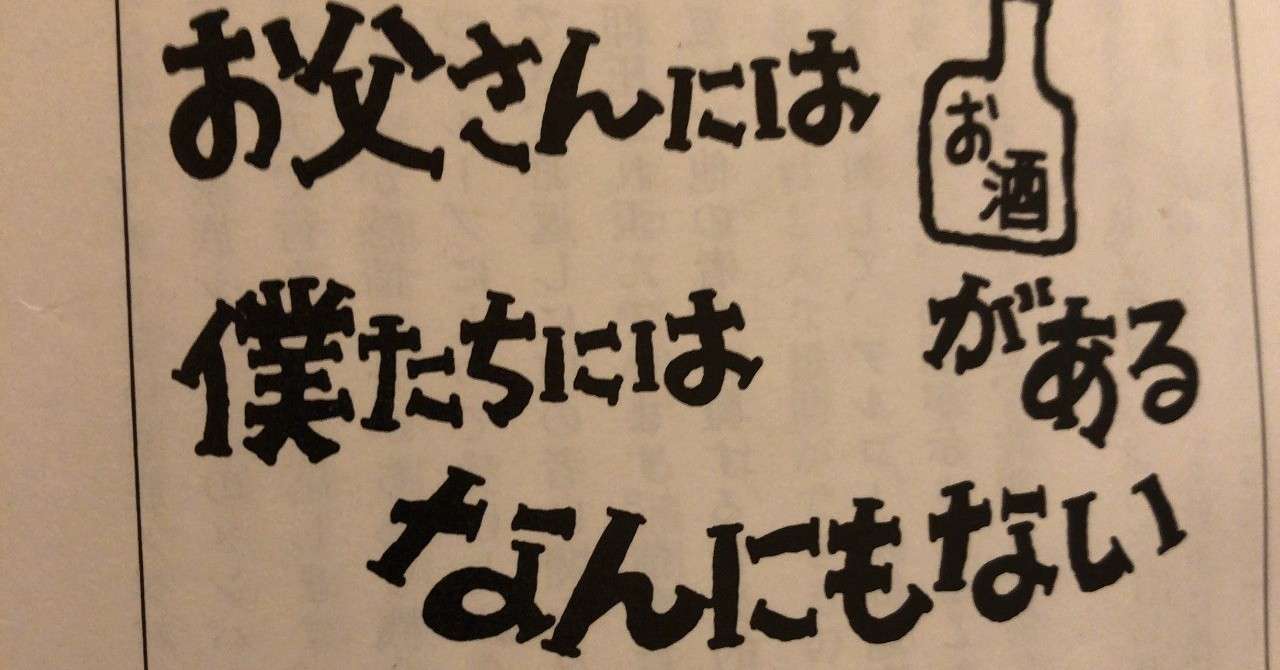 お父さんには
お酒
がある
僕たちには
なんにもない